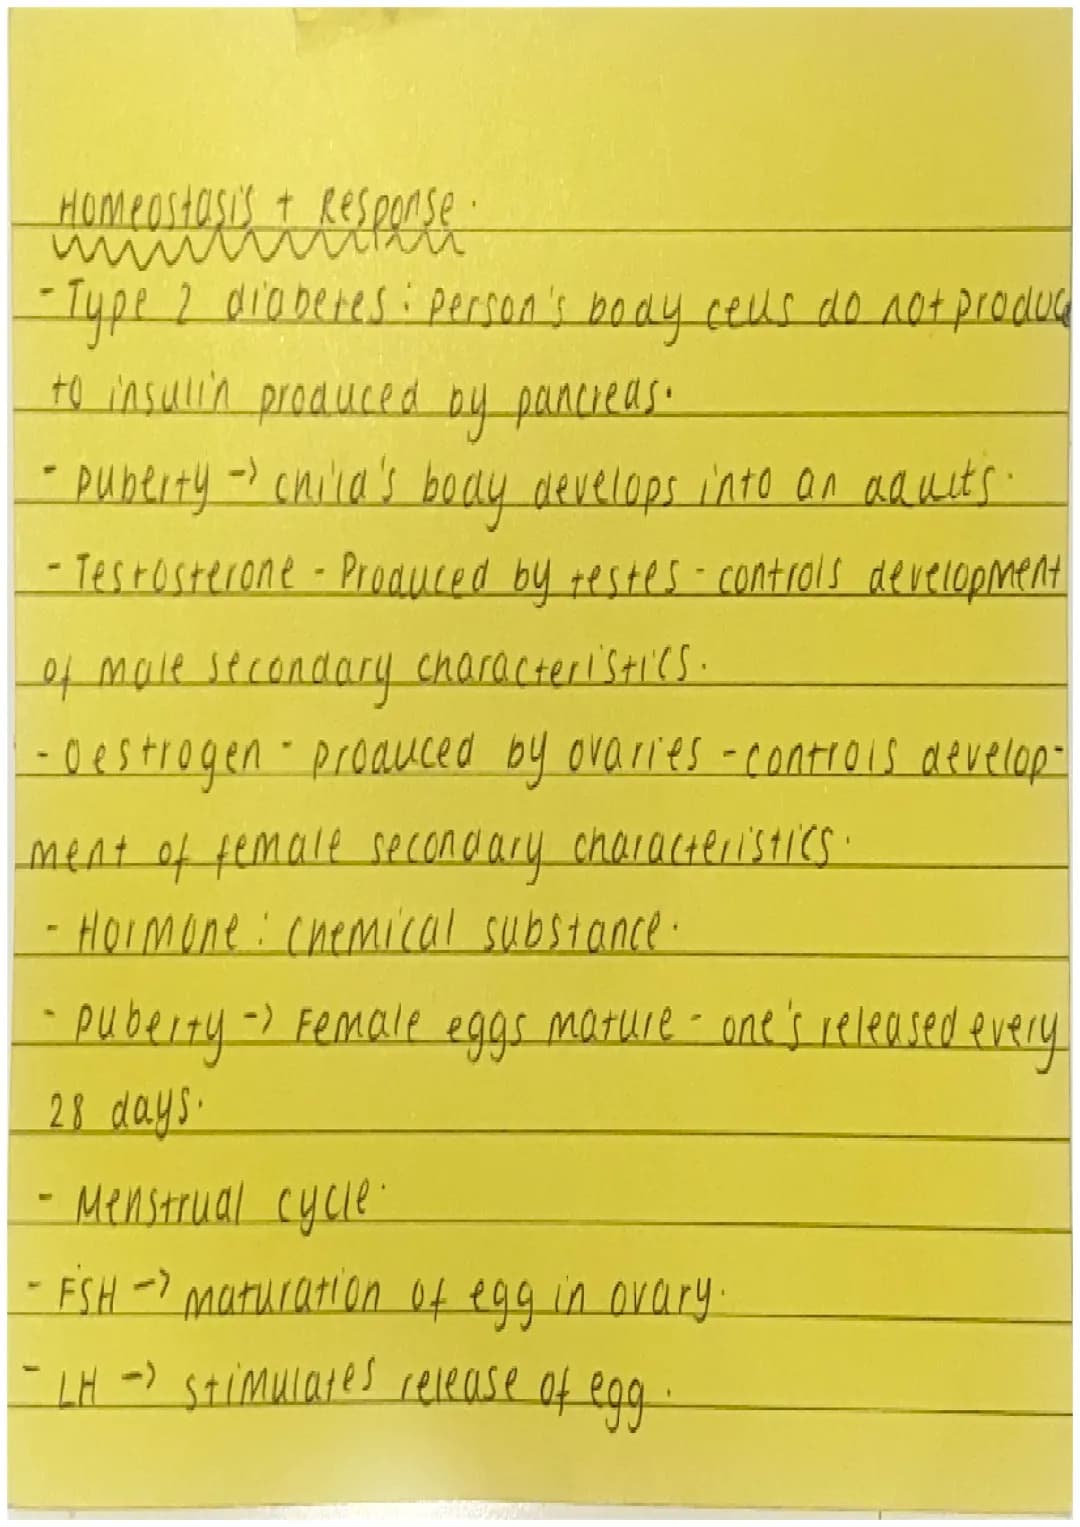 Homeostasis + Response.
- Type 2 diabetes: person's body cells do not produce
to insulin produced by pancreas.
- puberty -> child's body develops into an adults.
- Testosterone - Produced by testes - controls development
of male secondary characteristics.
- Oestrogen - produced by ovaries - controls develop-
ment of female secondary characteristics.
- Hormone: chemical substance.
- puberty -> Female eggs mature - one's released every
28 days.
- Menstrual cycle.
- FSH -> maturation of egg in ovary.
- LH -> stimulates release of egg.